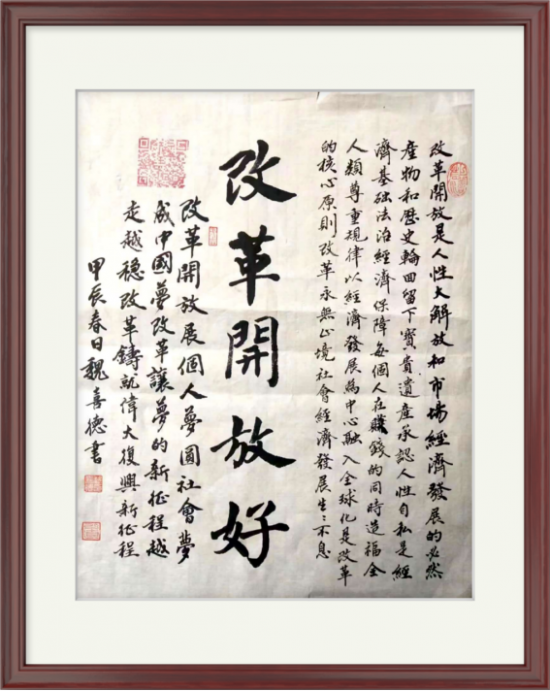 改革開放是人性大解放和市場經濟發展的必然
產物和歷史輪回留下寶貴遺産承認人性自私是經
濟基礎法治經濟保障每個人在賺錢的同時造福全
人類尊重規律以經濟發展為中心融入全球化是改革
的核心原則改革永無止境社會經濟發展生生不息
改革開放好
改革開放展個人夢圓社會夢
成中國夢改革讓夢的新征程越
走越穩改革鑄就偉大復興新征程
甲辰春日魏喜德書